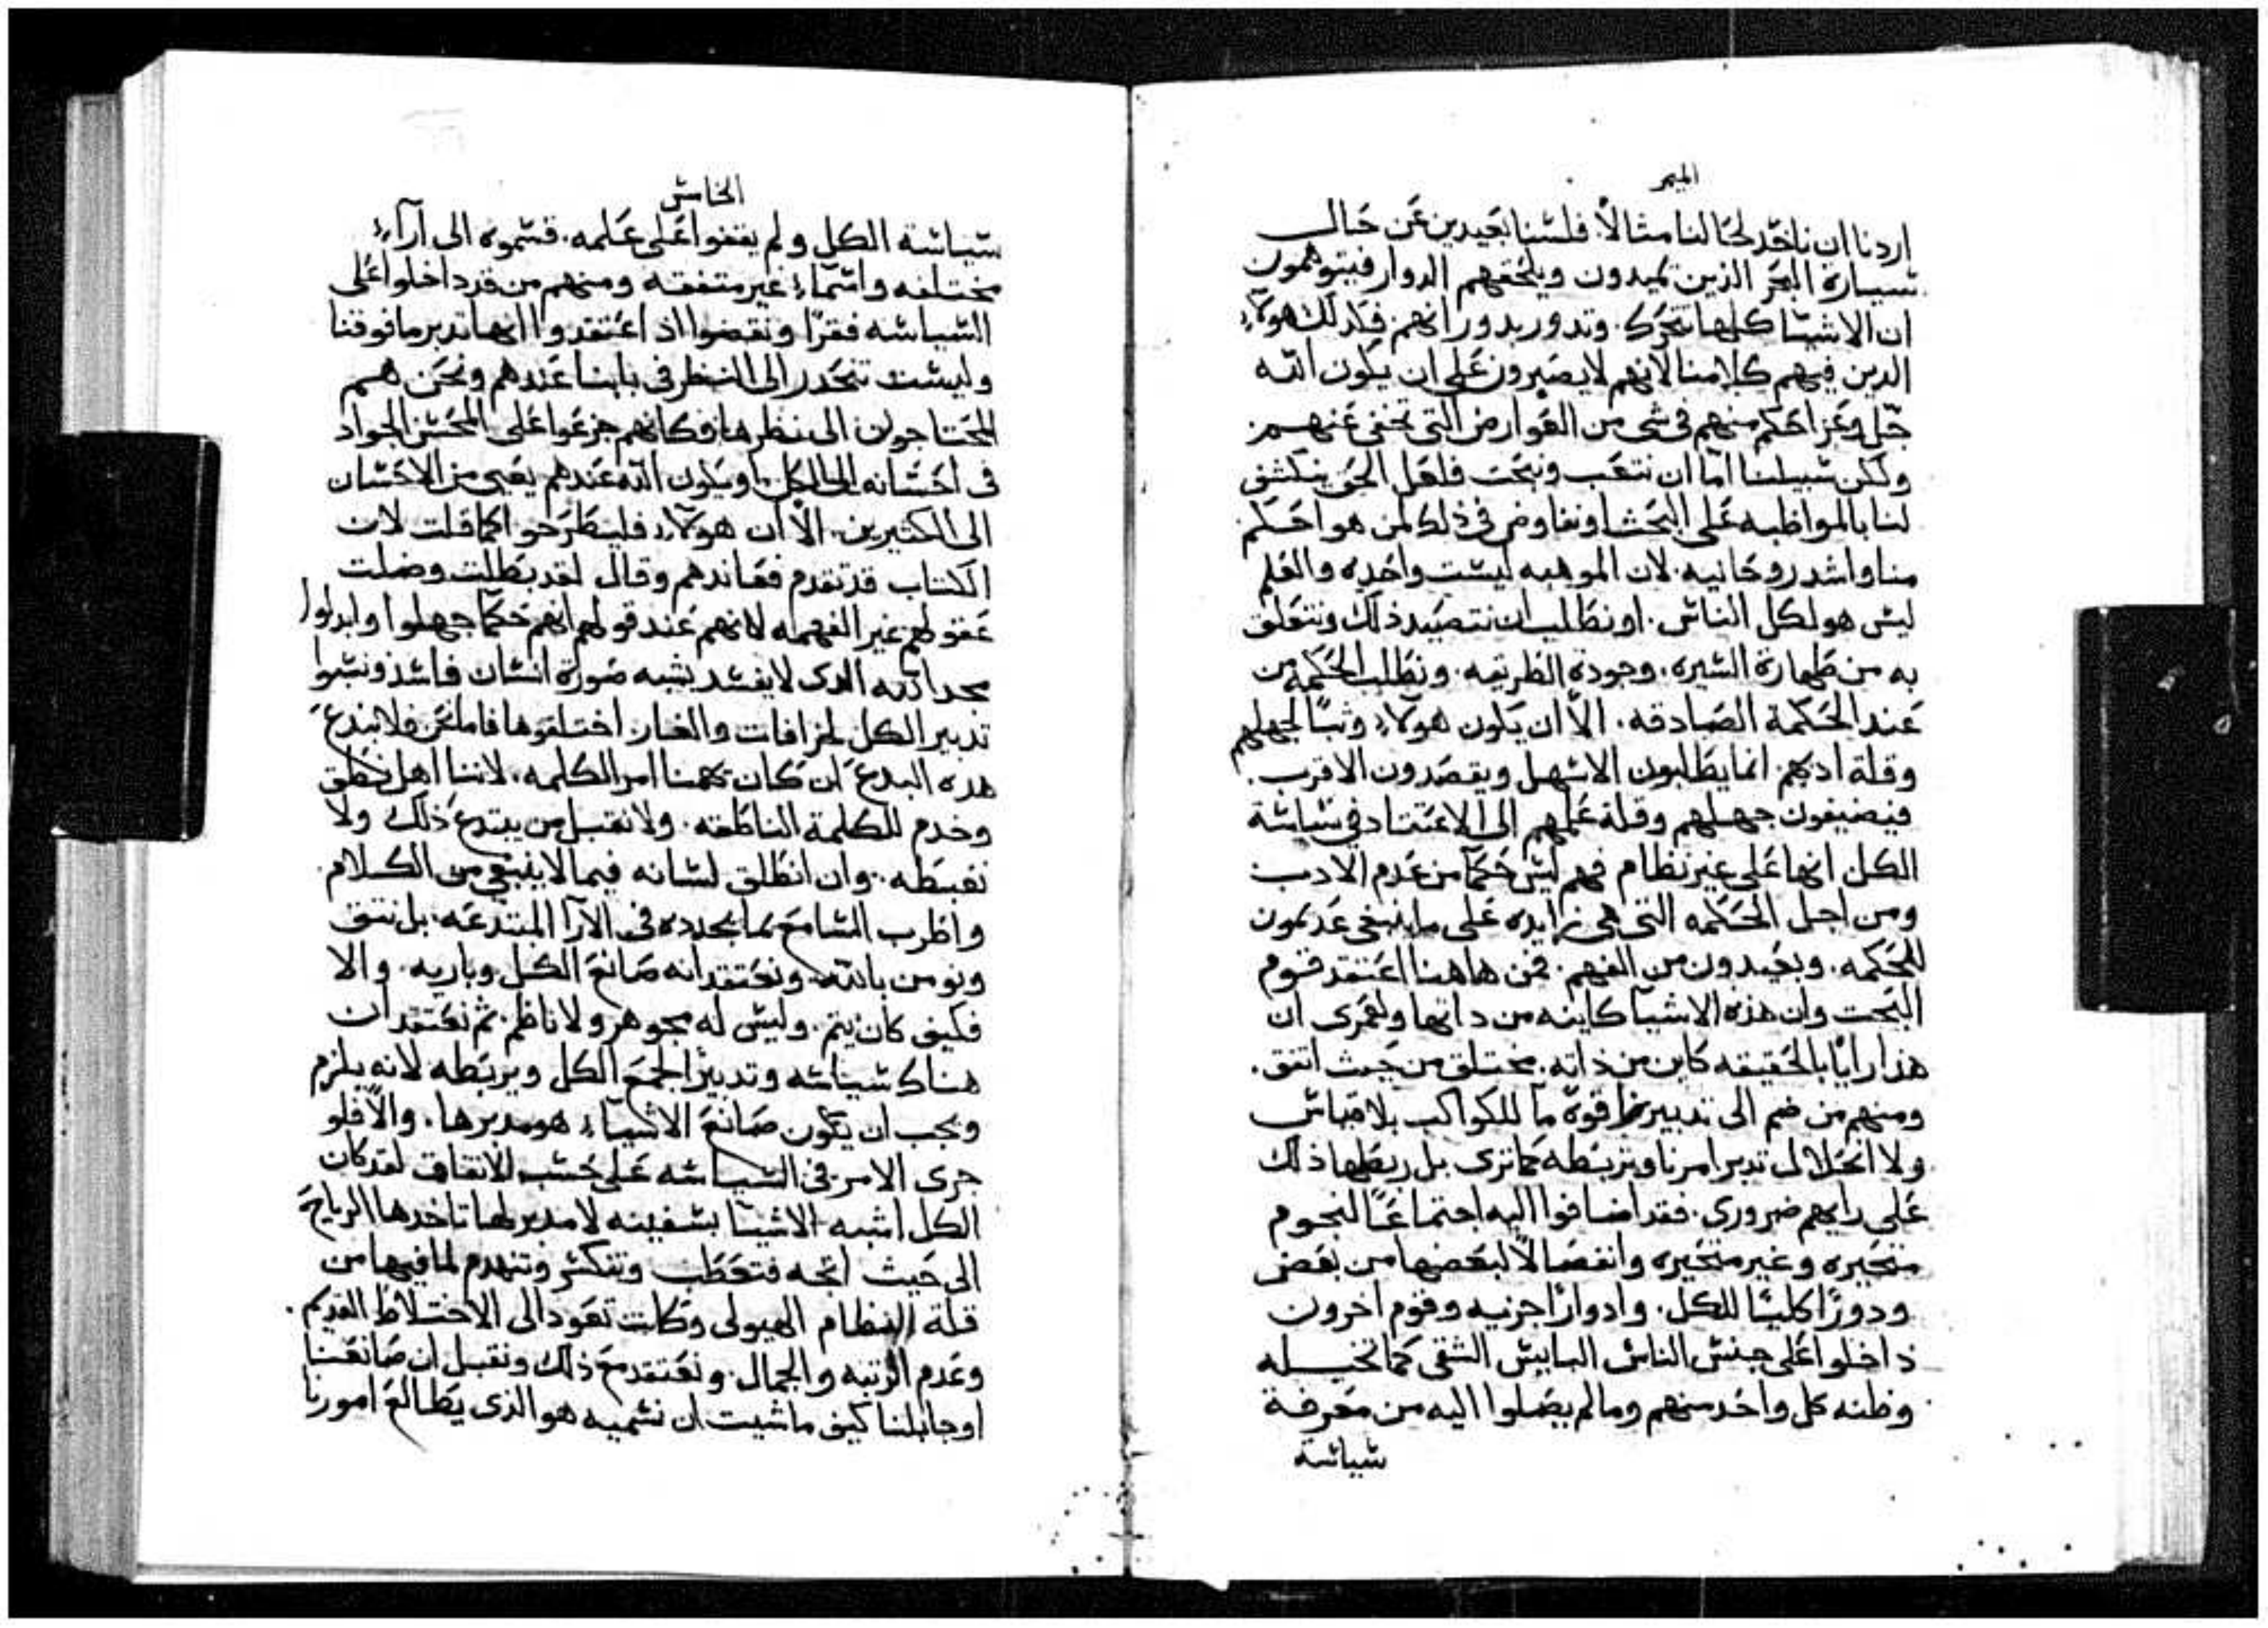 الميمر
اردنا ان ناخد لحالنا مثالاً. فلسنا بعيدين عن حال
سيارة البحر الذين يميدون ويلحقهم الدوار فيتوهمون
ان الاشيا كلها تتحرك. وتدور بدورانهم. فكدلك هولآء
الدين فيهم كلامنا لانهم لا يصبرون على ان يكون الله
جل وعز احكم منهم فى شى من العوارض التى تخفى عنهم.
ولكن سبيلنا اما ان نتعب ونبحت فلعل الحق ينكشف
لنا بالمواظبه على البحث او نفاوض فى ذلك لمن هو احكم
منا واشد روحانيه. لان الموهبه ليست واحده والعلم
ليس هو لكل الناس. او نطلب ان نتصيد ذلك ونتعلق
به من طهارة السيره. وجودة الطريقه. ونطلب الحكمه من
عند الحكمة الصادقه. الا ان يكون هولآء وثبًا لجهلهم
وقلة ادبهم. انما يطلبون الاسهل ويقصدون الاقرب.
فيضيفون جهلهم وقلة علمهم الى الاعتقاد فى سياسة
الكل انها على غير نظام فهم ليس حكمآ من عدم الادب
ومن اجل الحكمه التى هى زايده على ما ينبغى عديمون
للحكمه. وبعيدون من الفهم. فمن هاهنا اعتقد قوم
البخت وان هذه الاشيآ كاينه من داتها ولعمرى ان
هذا رايًا بالحقيقه كاين من ذاته. مختلق من حيث اتفق.
ومنهم من ضم الى تدبير قوة ما للكواكب بلا قياس
ولا انحلال تدبر امرنا وتربطه كما ترى بل ربطها ذلك
على رايهم ضرورى. فقد اضافوا اليه اجتماعًا لنجوم
متحيره وغير متحيره وانفصالاً لبعضها من بعض
ودورًا كليًا للكل. وادوارًا جزيه وقوم اخرون
داخلوا على جنس الناس البايس الشقى كما تخيله
وظنه كل واحد منهم وما لم يصلوا اليه من معرفة
سياسة
الخامس
سياسة الكل ولم يقفوا على علمه. قسموه الى ارآءٍ
مختلفه واسمآءٍ غير متفقه ومنهم من قد داخلوا على
السياسه فقرًا ونقضوا اذ اعتقدوا انها تدبر ما فوقنا
وليست تنحدر الى النظر فى بابنا عندهم ونحن هم
المحتاجون الى نظرها فكانهم جزعوا على المحسن الجواد
فى احسانه الى الكل. او يكون الله عندهم يعيى من الاحسان
الى الكثيرين. الا ان هولآء فليطرحوا كما قلت لان
الكتاب قد تقدم فعاندهم وقال لقد بطلت وضلت
عقولهم غير الفهمه لانهم عند قولهم انهم حكمآ جهلوا وابدلوا
مجد الله الدى لا يفسد بشبه صورة انسان فاسد ونسبوا
تدبير الكل لخرافات والغاز اختلقوها فاما نحن فلا نبدع
هده البدع لن كان يهمنا امر الكلمه. لاننا اهل نطق
وخدم للكلمة الناطقه. ولا نقبل من يبتدع ذلك ولا
نغبطه. وان انطلق لسانه فيما لا ينبغى من الكلام
واطرب السامع بما يجدده فى الآرآ المبتدعه. بل نتق
ونومن بالله ونعتقد انه صانع الكل وباريه. والا
فكيف كان يتم. وليس له مجوهر ولا ناظم. ثم نعتقد ان
هناك سياسه وتدبيرًا لجمع الكل ويربطه لانه يلزم
ويجب ان يكون صانع الاشيآء هو مدبرها. والاّ فلو
جرى الامر فى السياسه على حسب الاتفاق لقد كان
الكل اشبه الاشيآ بسفينه لا مدبر لها تاخدها الرياح
الى حيث اتجه فتحطب وتنكسر وتنهدم لما فيها من
قلة النظام الهيولى وكانت تعود الى الاختلاط القديم.
وعدم الرتبه والجمال. ونعتقد مع ذلك ونقبل ان صانعنا
او جابلنا كيف ما شيت ان تسميه هو الذى يطالع امورنا